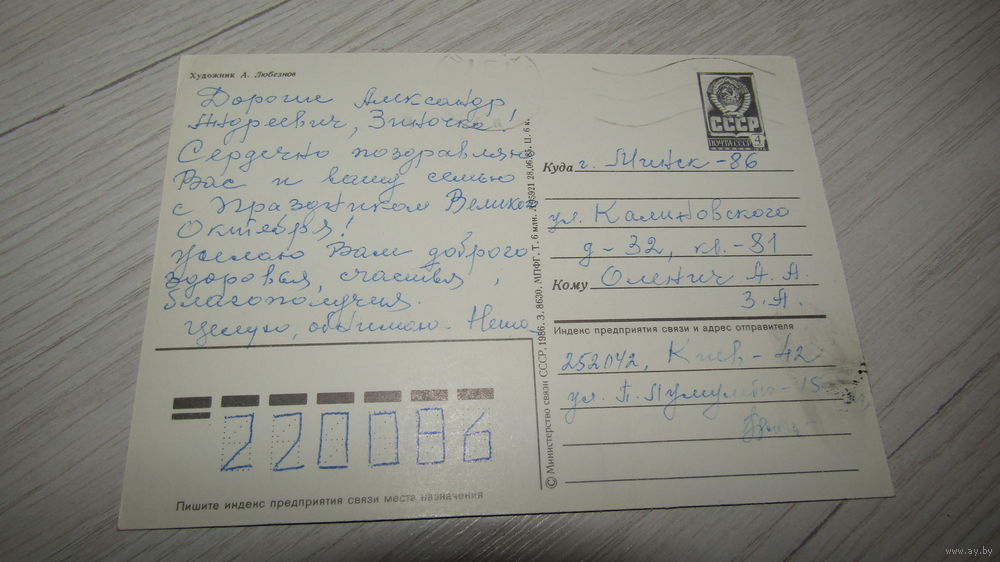 Художник А. Любезнов
Дорогие Александр
Андреевич, Зиночка!
Сердечно поздравляю
Вас и вашу семью
с Праздником Великого
Октября!
Желаю Вам доброго
здоровья, счастья,
благополучия.
Целую, обнимаю.
© Министерство связи СССР, 1986. З. 8630. МПФГ. Т. 6 млн. 28.06.85. Ц. 6 к.
СССР
ПОЧТА СССР 4
Куда г. Минск-86
ул. Калиновского
д-32, кв.-81
Кому Оленич А. А.
З. А.
Индекс предприятия связи и адрес отправителя
252042, Киев-42
ул. П. Лумумбы-15
220086
Пишите индекс предприятия связи места назначения
www.ay.by